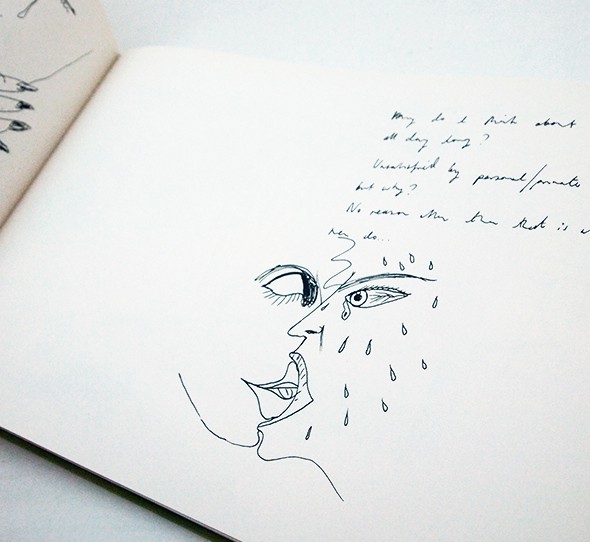 Why do I think about
all day long?
Unsatisfied by personal/private
but why?
No reason other than that is
men do...